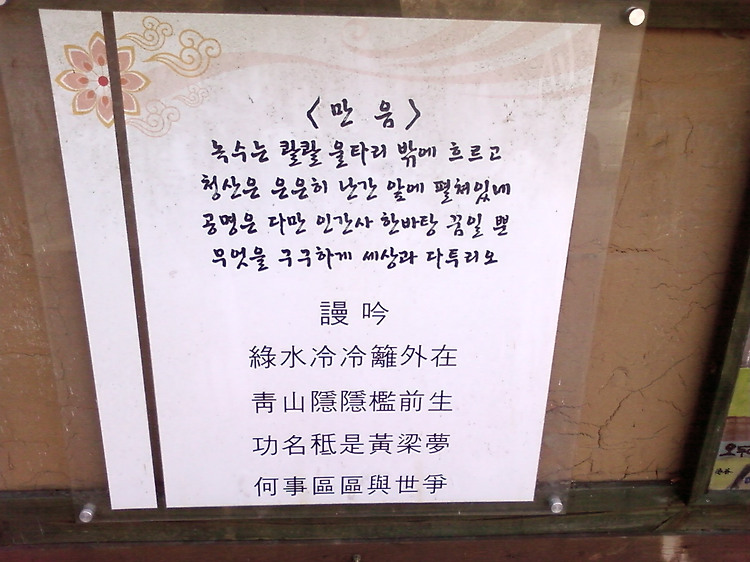 〈만 음〉
녹수는 콸콸 울타리 밖에 흐르고
청산은 은은히 난간 앞에 펼쳐있네
공명은 다만 인간사 한바탕 꿈일 뿐
무엇을 구구하게 세상과 다투리오
謾吟
綠水冷冷籬外在
靑山隱隱檻前生
功名秪是黃梁夢
何事區區與世爭